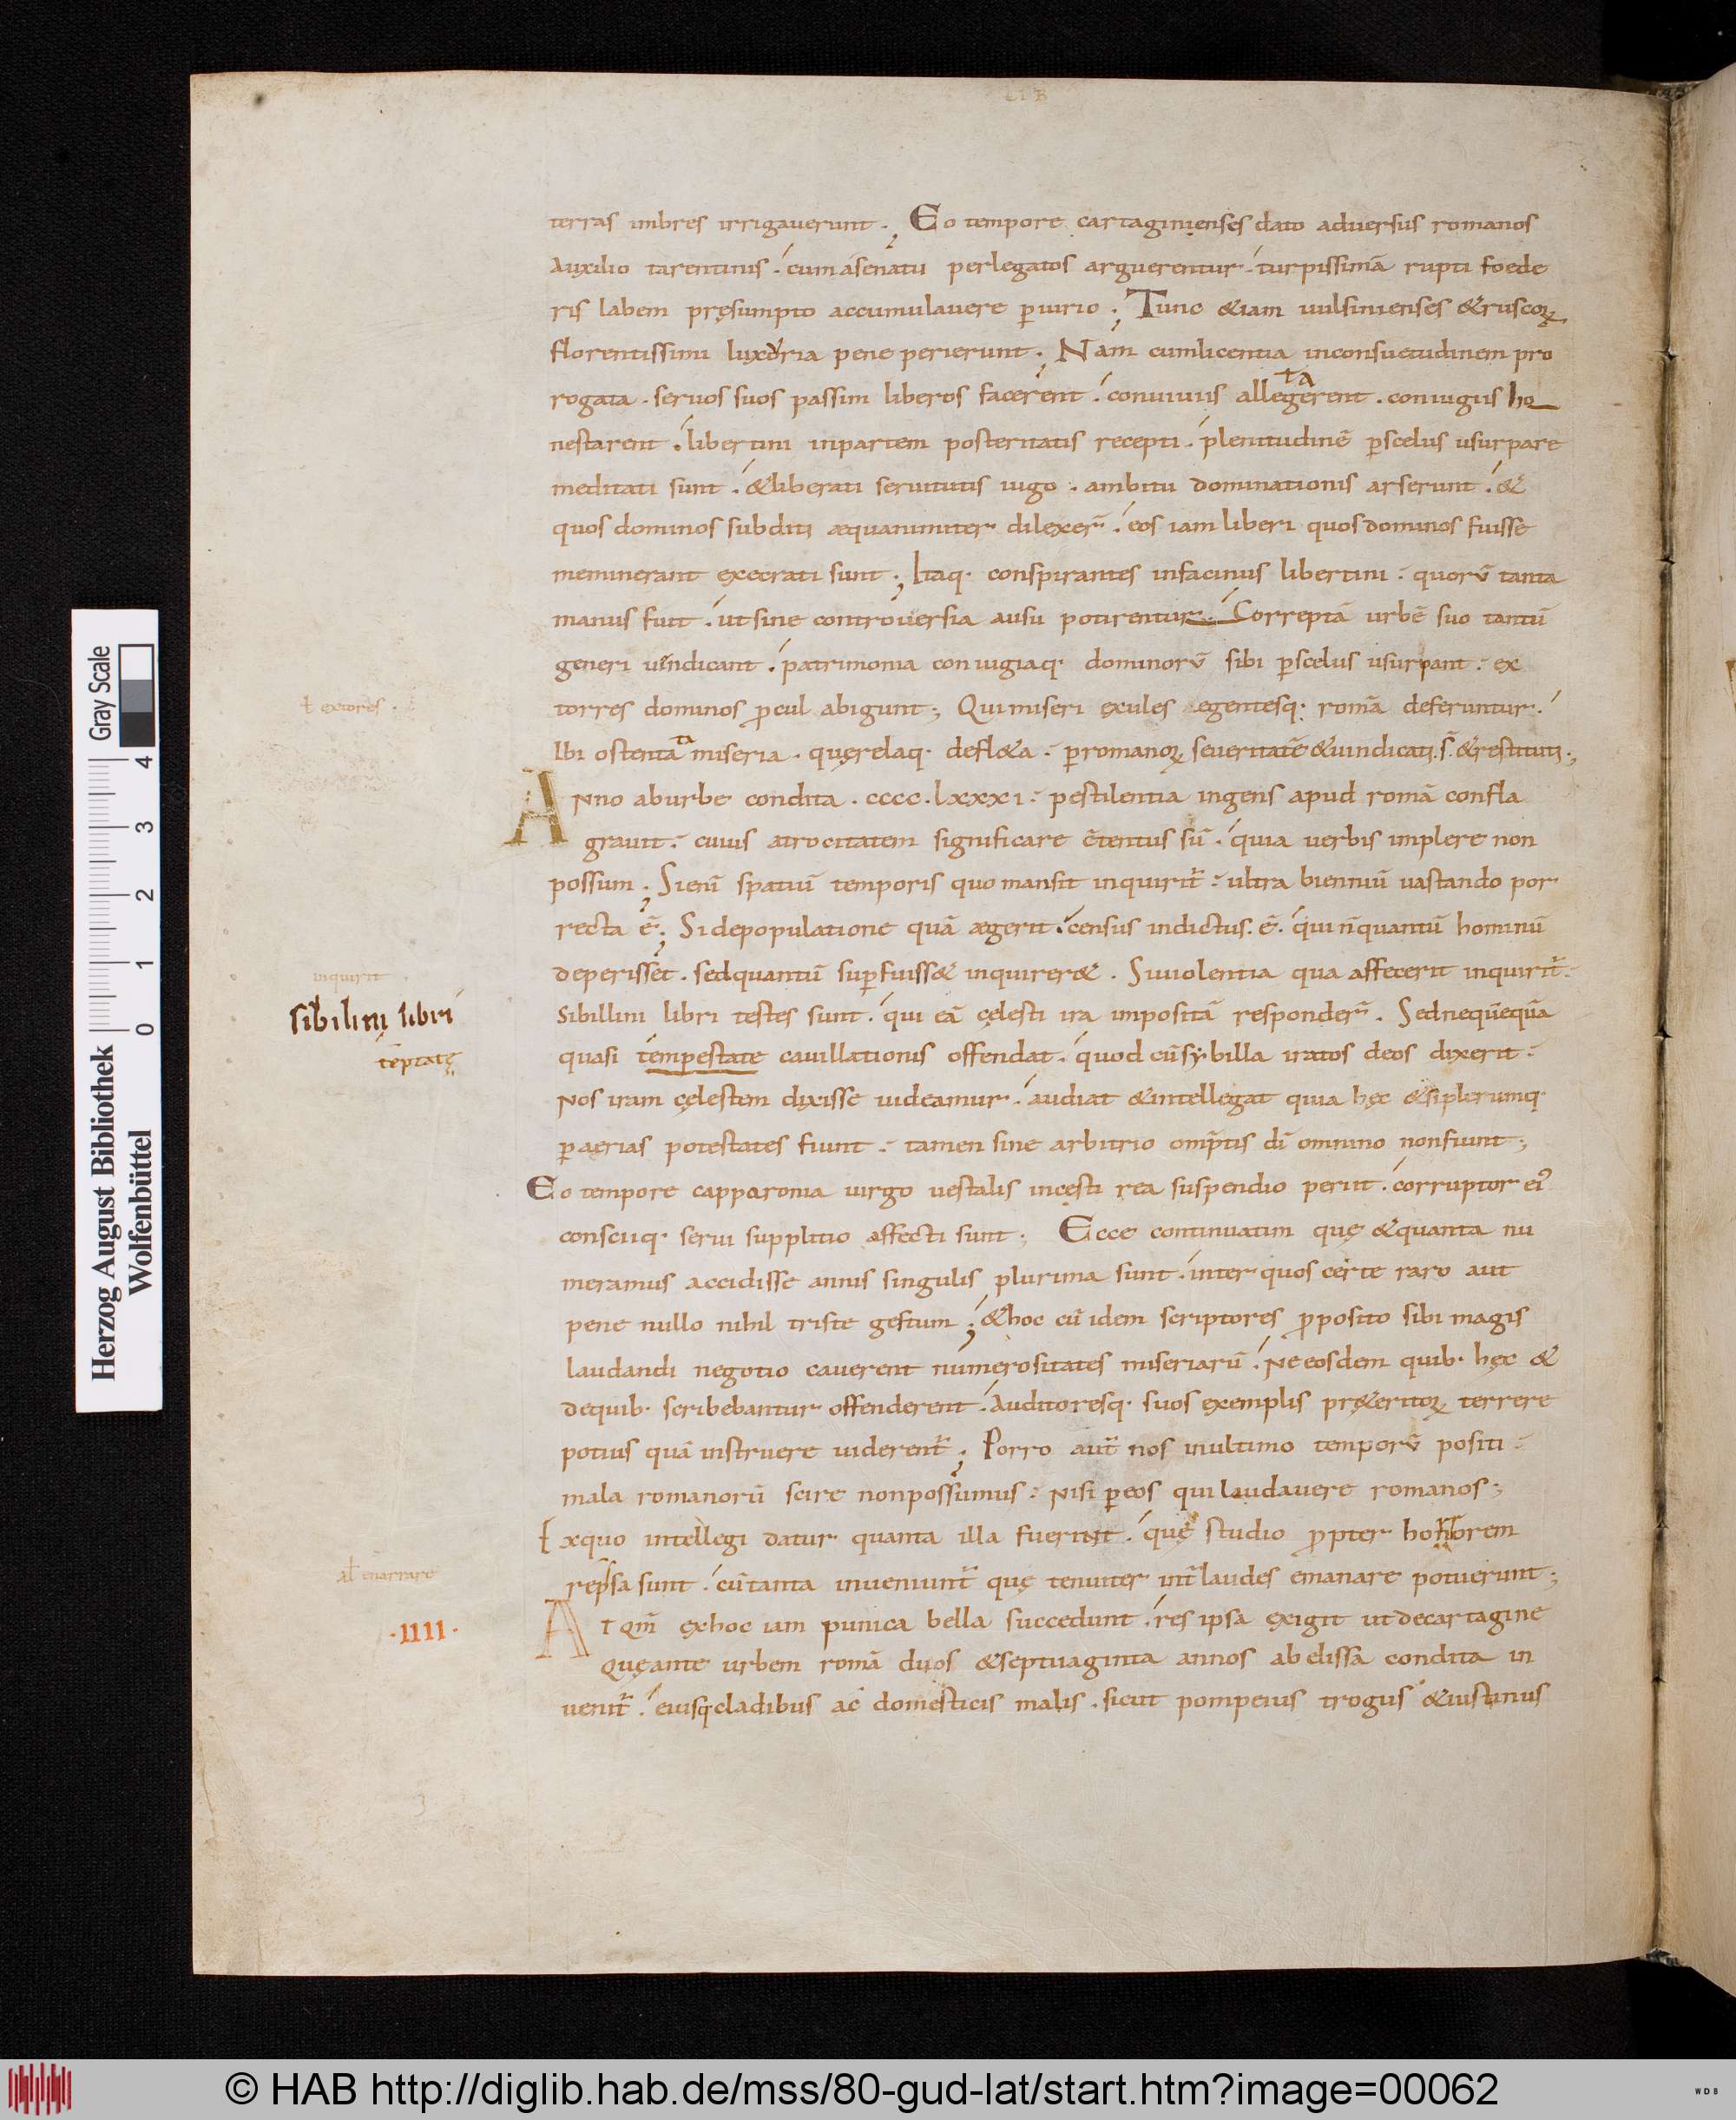 LIB
terras imbres irrigaverunt ; Eo tempore cartaginienses dato adversus romanos
Auxilio tarentinis . cum a senatu per legatos arguerentur . turpissimā rupti foede
ris labem pręsumpto accumulavere ꝑiurio ; Tunc &iam vulsinienses &ruscoꝝ
florentissimi luxoria pene perierunt ; Nam cum licentia in consuetudinem pro
rogata . servos suos passim liberos facerent . conviviis allegerent . coniugiis ho
ta
nestarent . libertini in partem posteritatis recepti . plenitudinē ꝑ scelus usurpare
meditati sunt . & liberati servitutis iugo . ambitu dominationis arserunt . &
quos dominos subditi æquanimiter dilexer̄ . eos iam liberi quos dominos fuisse
meminerant execrati sunt ; Itaq· conspirantes in facinus libertini . quorū tanta
manus fuit . ut sine controversia ausu potirentur . Correptā urbē suo tantū
generi vindicant . patrimonia coniugiaq· dominorū sibi ꝑ scelus usurpant . ex
torres dominos ꝓcul abigunt ; Qui miseri exules egentesq· romā deferuntur .
ł extores .
Ibi ostentata miseria . quęrelaq· defl&a . ꝑ romanoꝝ severitatē & vindicati . s̄ . & restituti ;
Anno ab urbe condita . cccc . lxxxi . pestilentia ingens apud romā confla
gravit . cuius atrocitatem significare c̄tentus sū . quia verbis implere non
possum ; Si enī spatiū temporis quo mansit inquirit̄ . ultra bienniū vastando por
recta ē ; Si de populatione quā ægerit . census indictus . ē . qui n̄ quantū hominū
deperisset . sed quantū suꝑfuiss& inquirer& . Si violentia qua affecerit inquirit̄ .
inquirit
Sibillini libri testes sunt . qui eā cęlesti ira impositā responder̄ . Sed ne quēquā
sibilini libri
quasi tempestate cavillationis offendat . quod cū sybilla iratos deos dixerit .
tēptatę
Nos iram cęlestem dixisse videamur . audiat & intellegat quia hęc & si plerumq·
ꝑ aęrias potestates fiunt . tamen sine arbitrio omp̄tis dī omnino non fiunt ;
Eo tempore capparonia virgo vestalis incęsti rea suspendio periit . corruptor ei'
consciiq· servi supplitio affecti sunt ; Ecce continuatim quę & quanta nu
meramus accidisse annis singulis plurima sunt . inter quos certe raro aut
pene nullo nihil triste gestum ; & hoc cū idem scriptores ꝓposito sibi magis
laudandi negotio caverent numerositates miseriarū . Ne eosdem quib· hęc &
de quib· scribebantur offenderent . Auditoresq· suos exemplis pręteritoꝝ terrere
potius quā instruere viderent̄ ; Porro aut̄ nos in ultimo temporū positi .
mala romanorū scire non possumus . Nisi ꝑ eos qui laudavere romanos ;
Ex quo intellegi datur quanta illa fuerint . quę studio ꝓpter horrorem
rep̄sa sunt . cū tanta inveniunt̄ quę tenuiter int̄ laudes emanare potuerunt ;
al enarrare
At qm̄ ex hoc iam punica bella succedunt . res ipsa exigit ut de cartagine
·IIII·
Quę ante urbem romā duos & septuaginta annos ab elissa condita in
venit̄ . eiusq· cladibus ac domesticis malis . sicut pompeius trogus & iustinus
Gray Scale
Herzog August Bibliothek
Wolfenbüttel
0 1 2 3 4
© HAB http://diglib.hab.de/mss/80-gud-lat/start.htm?image=00062
WDB